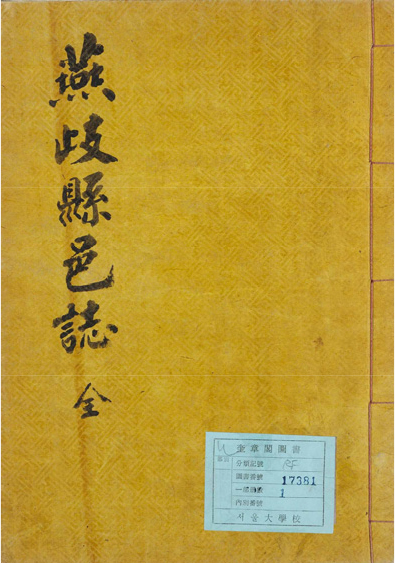 燕歧縣邑誌 全
奎章閣圖書
分類記號
圖書番號 17381
一部冊數 1
內別番號
서울大學校